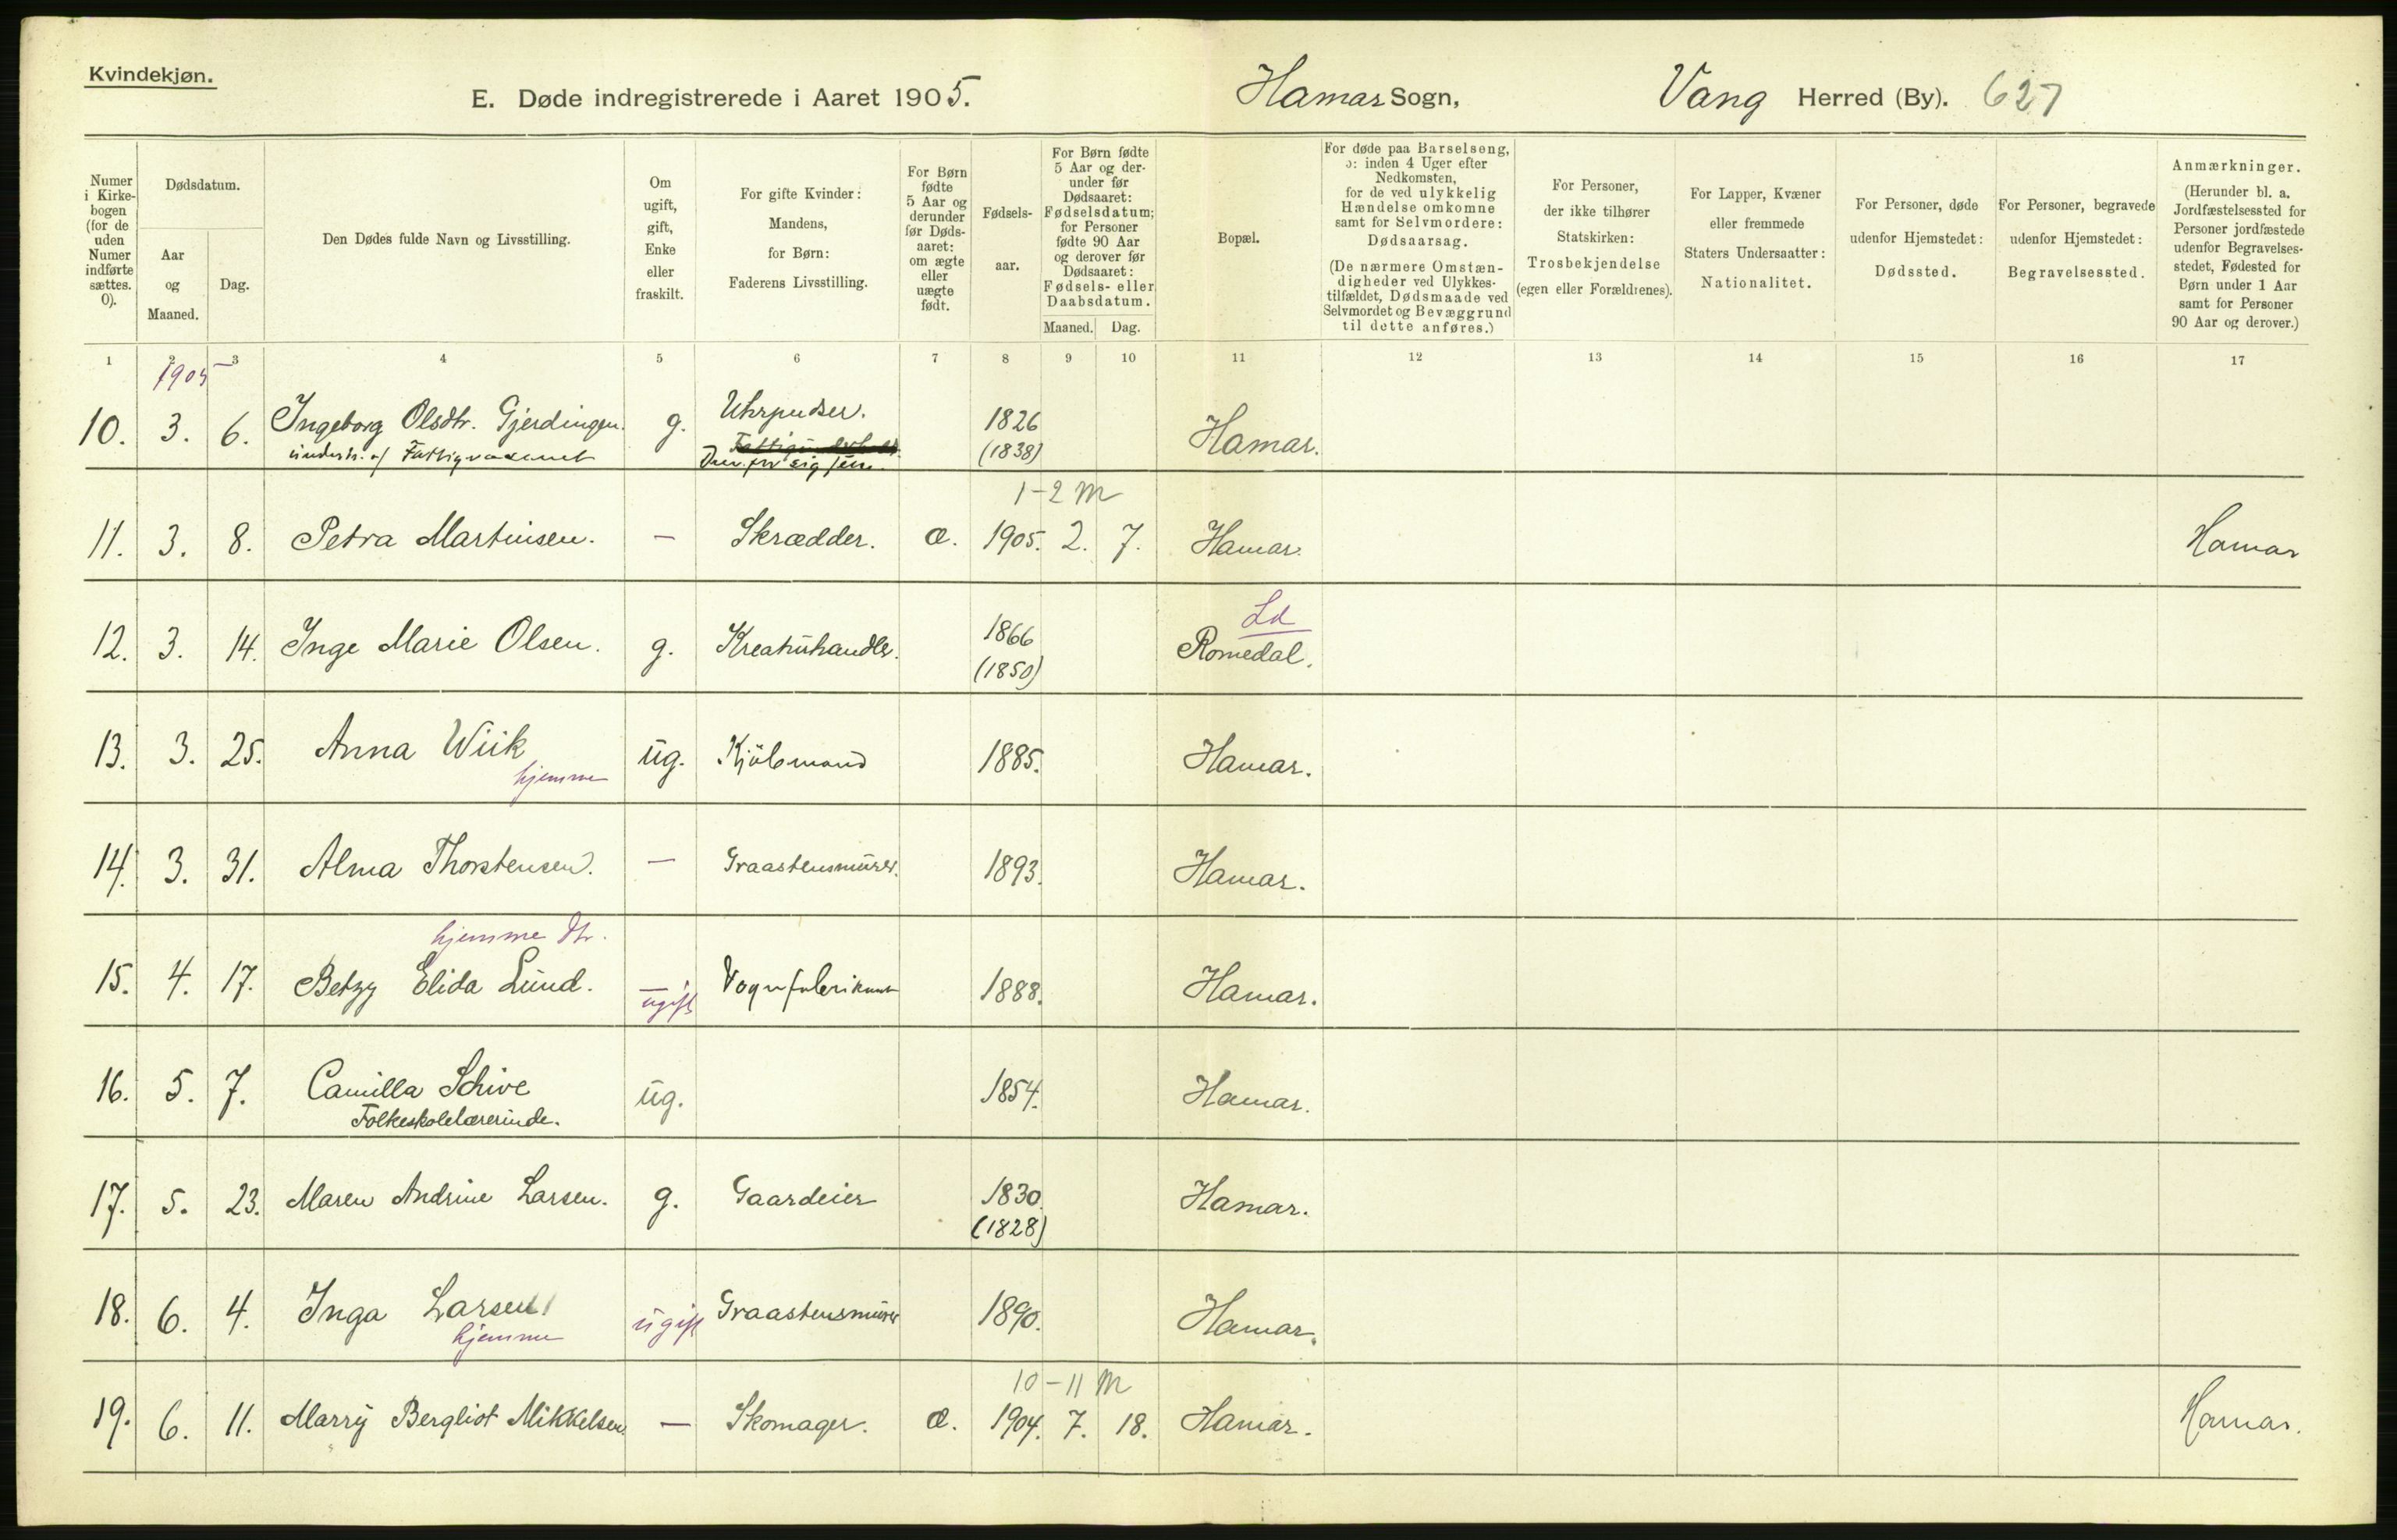 Kvindekjøn.
E. Døde indregistrerede i Aaret 1905. Hamar Sogn, Vang Herred (By). 627
Numer i Kirkebogen (for de uden Numer indførte sættes. 0).
Dødsdatum.
Aar og Maaned.
Dag.
Den Dødes fulde Navn og Livsstilling.
Om ugift, gift, Enke eller fraskilt.
For gifte Kvinder: Mandens, for Børn: Faderens Livsstilling.
For Børn fødte 5 Aar og derunder før Dødsaaret: om ægte eller uægte født.
Fødselsaar.
For Børn fødte 5 Aar og derunder før Dødsaaret: Fødselsdatum; for Personer fødte 90 Aar og derover før Dødsaaret: Fødsels- eller Daabsdatum.
Maaned. Dag.
Bopæl.
For døde paa Barselseng, ɔ: inden 4 Uger efter Nedkomsten, for de ved ulykkelig Hændelse omkomne samt for Selvmordere: Dødsaarsag.
(De nærmere Omstændigheder ved Ulykkestilfældet, Dødsmaade ved Selvmordet og Bevæggrund til dette anføres.)
For Personer, der ikke tilhører Statskirken: Trosbekjendelse (egen eller Forældrenes).
For Lapper, Kvæner eller fremmede Staters Undersaatter: Nationalitet.
For Personer, døde udenfor Hjemstedet: Dødssted.
For Personer, begravede udenfor Hjemstedet: Begravelsessted.
Anmærkninger.
(Herunder bl. a. Jordfæstelsessted for Personer jordfæstede udenfor Begravelsesstedet, Fødested for Børn under 1 Aar samt for Personer 90 Aar og derover.)
1 2 3 4 5 6 7 8 9 10 11 12 13 14 15 16 17
1905
10. 3. 6. Ingeborg Olsdtr. Gjerdingen. g. Uhrpudser. 1826 Hamar.
underst. af Fattigvæsenet (1838)
1-2 M
11. 3. 8. Petra Martinsen. — Skrædder. æ. 1905. 2. 7. Hamar. Hamar
Ld
12. 3. 14. Inge Marie Olsen. g. Kreaturhandler. 1866 Romedal.
(1850)
13. 3. 25. Anna Wiik ug. Kjøbmand 1885. Hamar.
hjemme
14. 3. 31. Alma Thorstensen. — Graastensmurer. 1893. Hamar.
hjemme dtr.
15. 4. 17. Betzy Elida Lund. — Vognfabrikant 1888. Hamar.
ugift
16. 5. 7. Camilla Schive ug. 1854. Hamar.
Folkeskolelærerinde.
17. 5. 23. Maren Andrine Larsen. g. Gaardeier 1830. Hamar.
(1828)
18. 6. 4. Inga Larsen ugift Graastensmurer 1890. Hamar.
hjemme
10-11 M
19. 6. 11. Marry Bergliot Mikkelsen. — Skomager. æ. 1904. 7. 18. Hamar. Hamar.